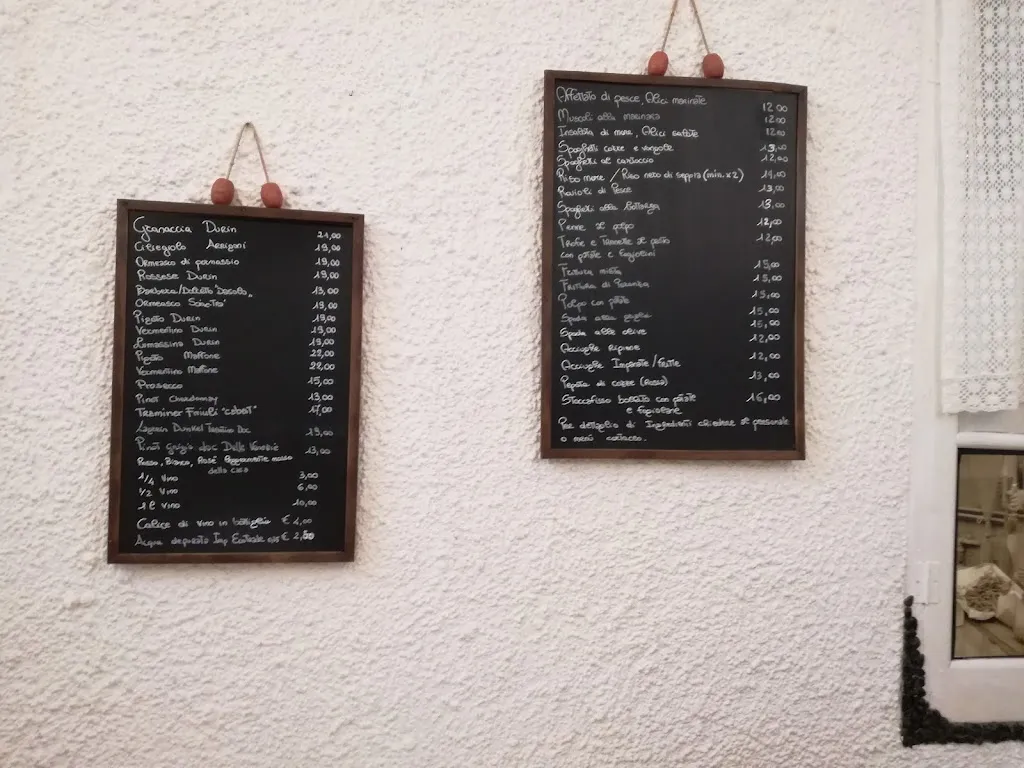 Granaccia Durin 21,00
Ciliegiolo Arrigoni 19,00
Ormeasco di pornassio 19,00
Rossese Durin 19,00
Barbera/Dolcetto "Dasolo" 13,00
Ormeasco Sciactrà 19,00
Pigato Durin 19,00
Vermentino Durin 19,00
Lumassina Durin 19,00
Pigato Maffone 22,00
Vermentino Maffone 22,00
Prosecco 15,00
Pinot Chardonnay 13,00
Traminer Friuli "cabert" 17,00
Lagrein Dunkel Trentino Doc 19,00
Pinot grigio doc Delle Venezie 13,00
Rosso, Bianco, Rosè mosso
della casa
1/4 vino 3,00
1/2 vino 6,00
1 l vino 10,00
Calice di vino in bottiglia € 4,00
Acqua Imp € 2,50
Affettato di pesce, Alici marinate 12,00
Muscoli alla marinara 12,00
Insalata di mare, Alici salate 12,00
Spaghetti cozze e vongole 13,00
Spaghetti al cartoccio 12,00
Riso mare / Riso nero di seppia (min. x2) 14,00
Ravioli di Pesce 13,00
Spaghetti alla Bottarga 13,00
Penne al polpo 12,00
Trofie e Trenette al pesto 12,00
con patate e fagiolini
Frittura mista 15,00
Frittura di Paranza 15,00
Polpo con patate 15,00
Spada alla griglia 15,00
Spada alle olive 15,00
Acciughe Ripiene 12,00
Acciughe Impanate / Fritte 12,00
Pepata di cozze (Rossa) 13,00
Stoccafisso bollito con patate 16,00
e fagiolane
Per dettaglio di Ingredienti chiedere al personale
o menù cartaceo.